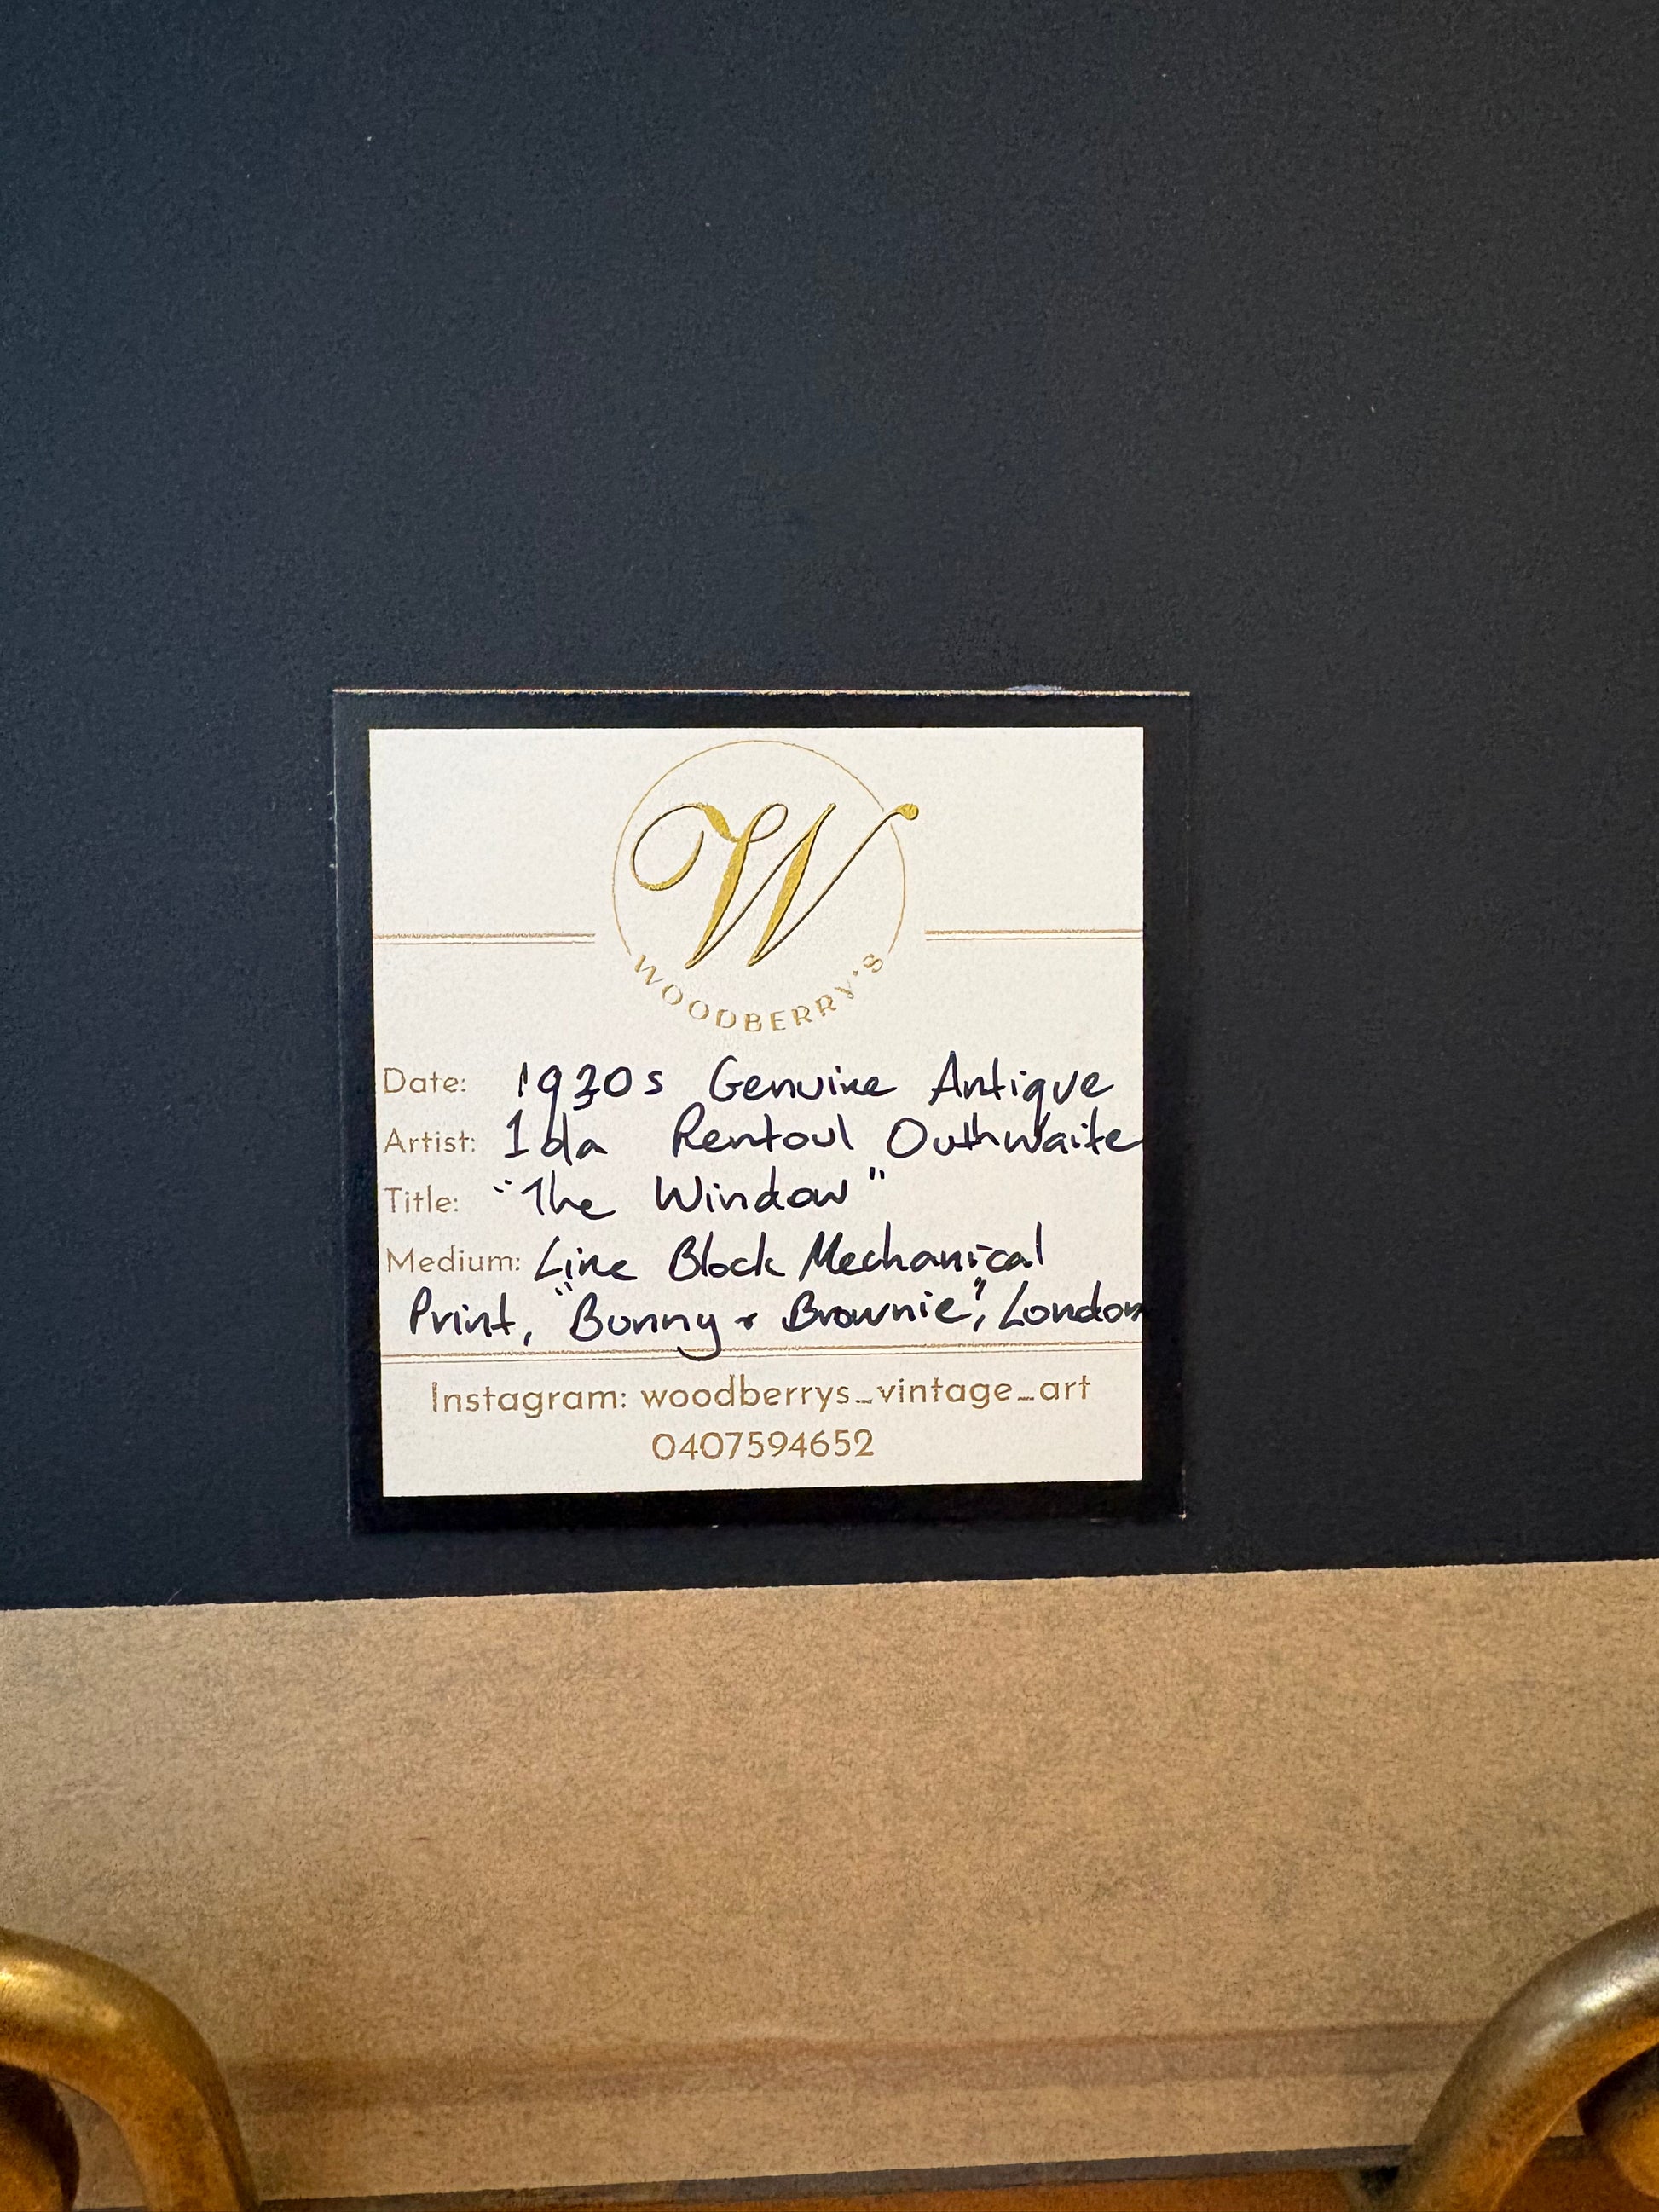 W
WOODBERRY'S
Date: 1930s Genuine Antique
Artist: Ida Rentoul Outhwaite
Title: "The Window"
Medium: Line Block Mechanical
Print, "Bunny & Brownie", London
Instagram: woodberrys_vintage_art
0407594652